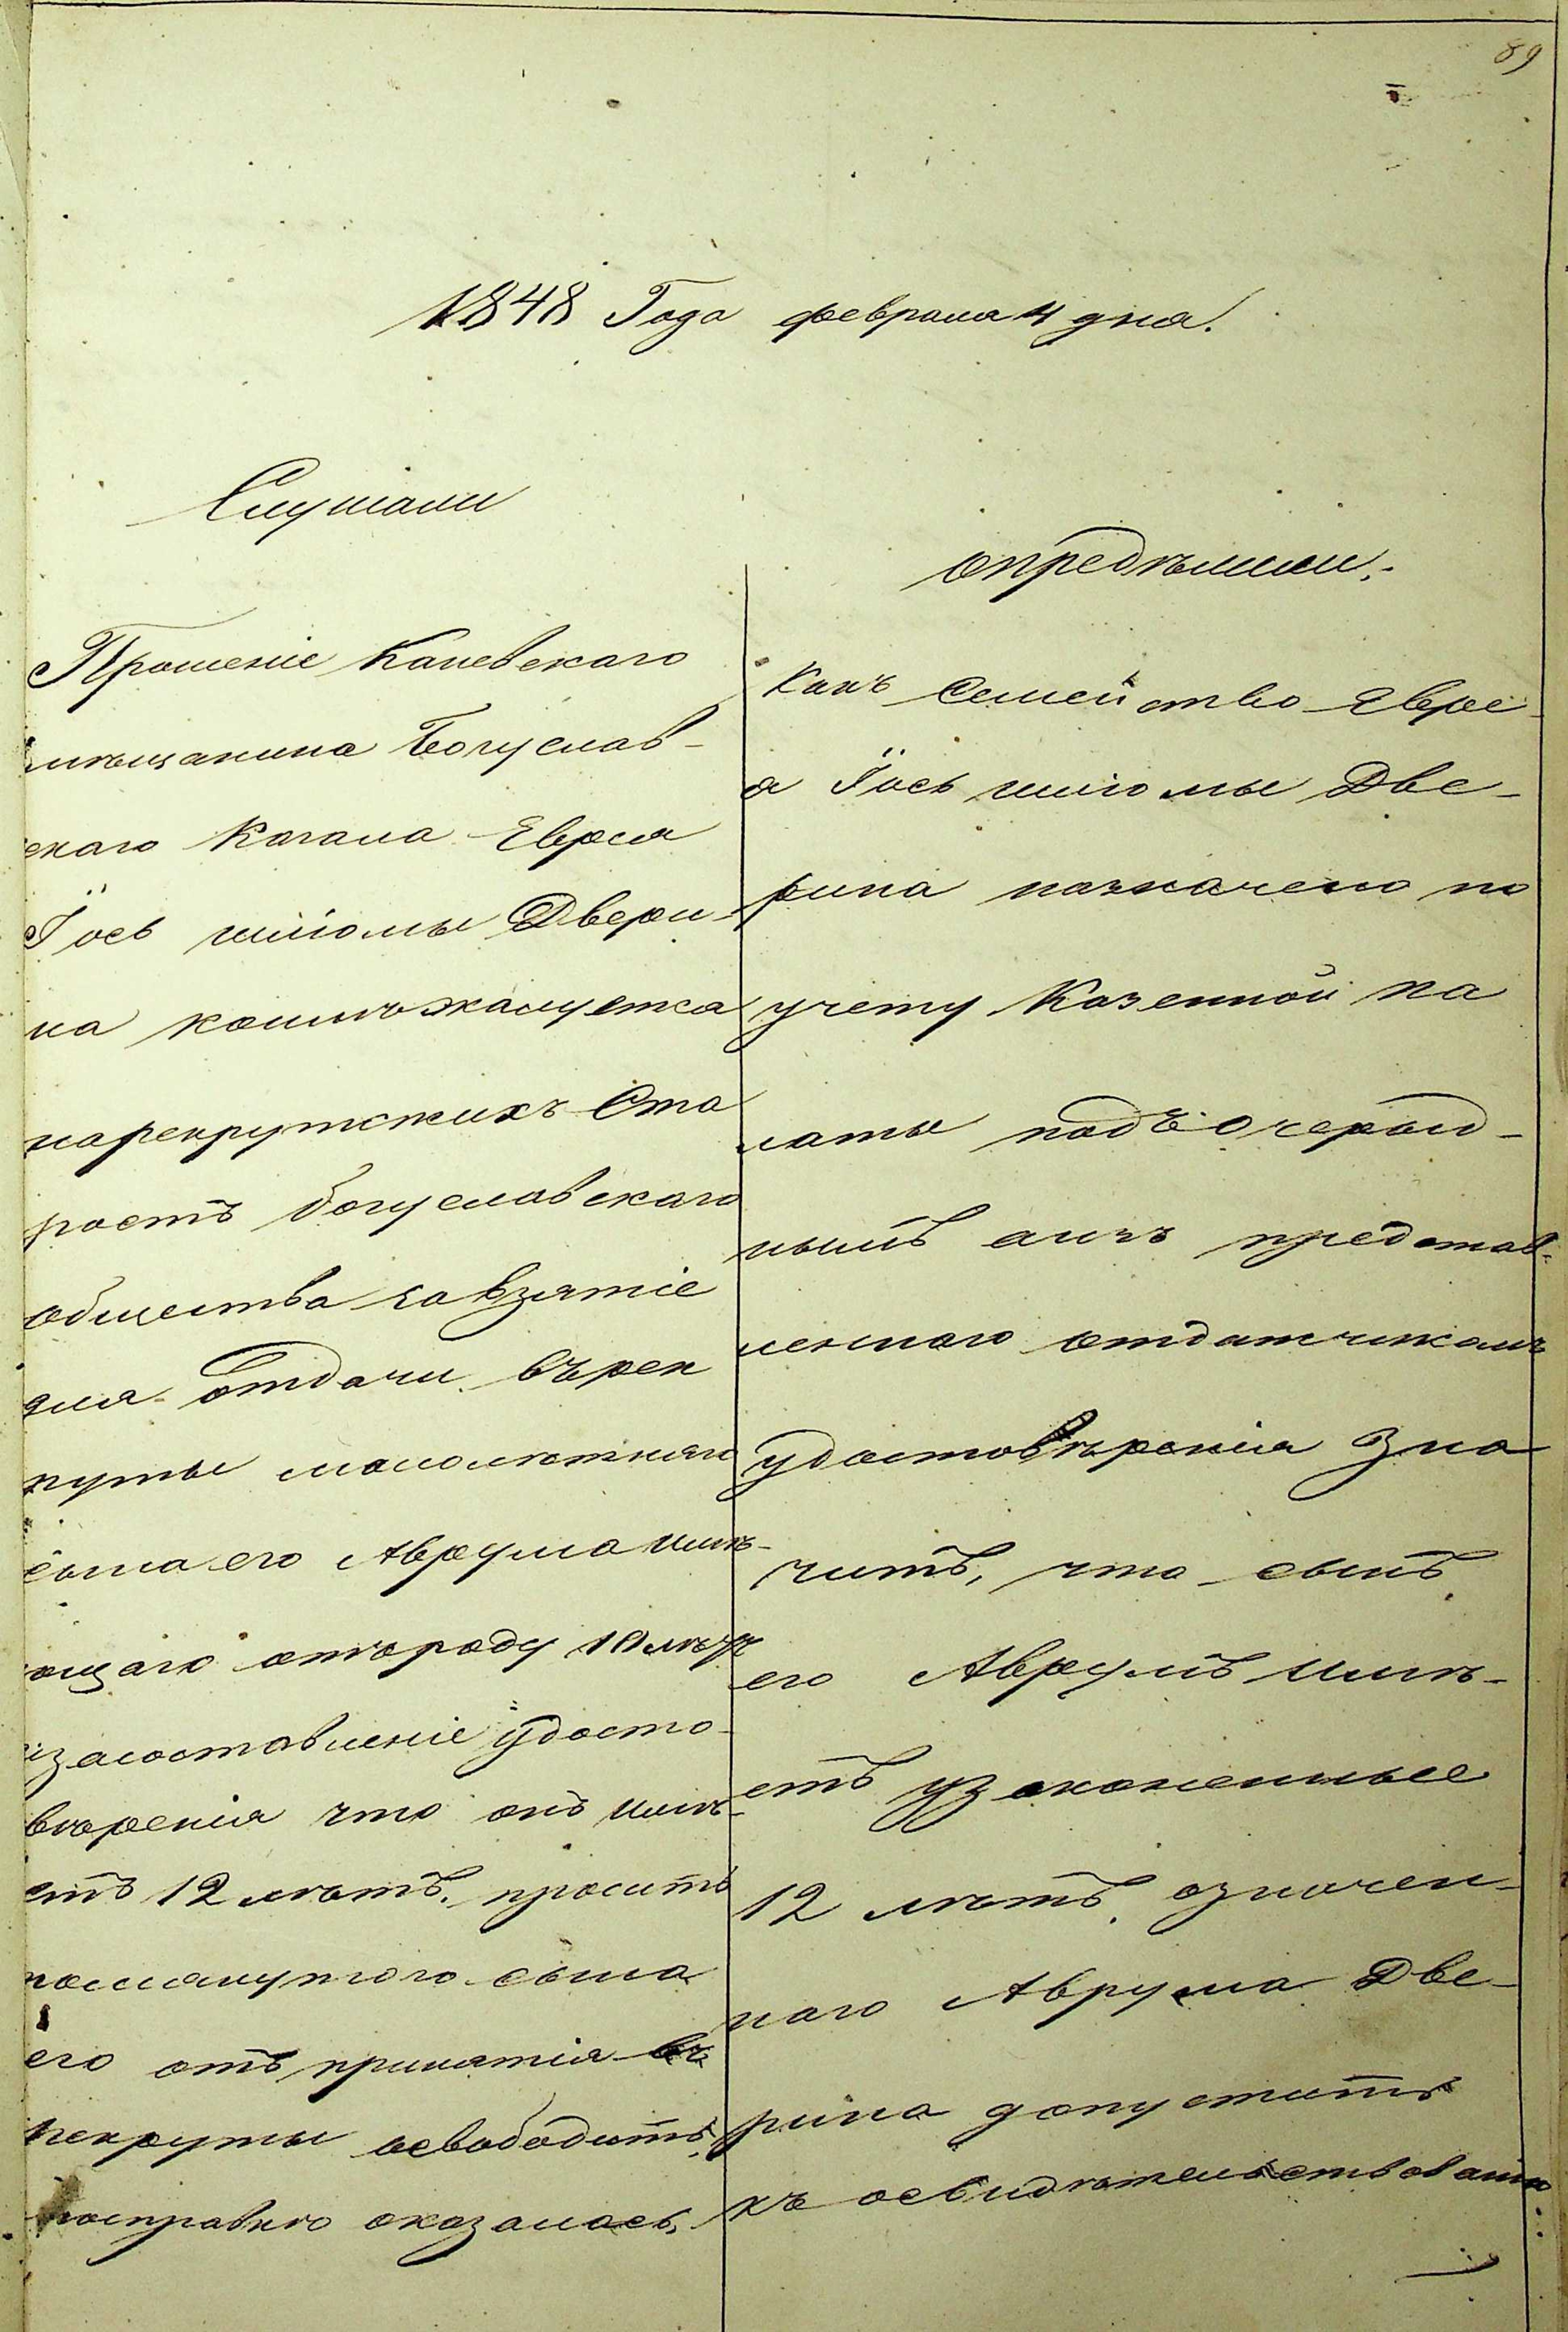 89
1848 Года февраля 4 дня.
Слушали
Прошеніе Каневскаго
мѣщанина Богуслав-
скаго Кагала Еврея
Іось шліомы Двери-
на коимъ жалуется
нарекрутскихъ Ста
ростъ богуславскаго
общества за взятіе
для отдачи върек
руты малолѣтняго
сына его Аврума имѣ-
ющаго отъ роду 10 лѣтъ
изасоставленіе удосто-
вѣренія что онъ имѣ-
етъ 12 лѣтъ. проситъ
помянутого сына
его отъ принятія въ
рекруты освободить,
посправкѣ оказалось,
опредѣлили.
Какъ Семейство Евре-
я Іось шліомы Две-
рина назначено по
учету Казенной па
латы подъ Очеред-
нымъ аизъ представ-
леннаго отдатчикомъ
удостовѣренія Зна
читъ, что сынъ
его Аврумъ имѣ-
етъ узаконенные
12 лѣтъ. означен-
наго Аврума Две-
рина допустить
къ освидѣтельствованію